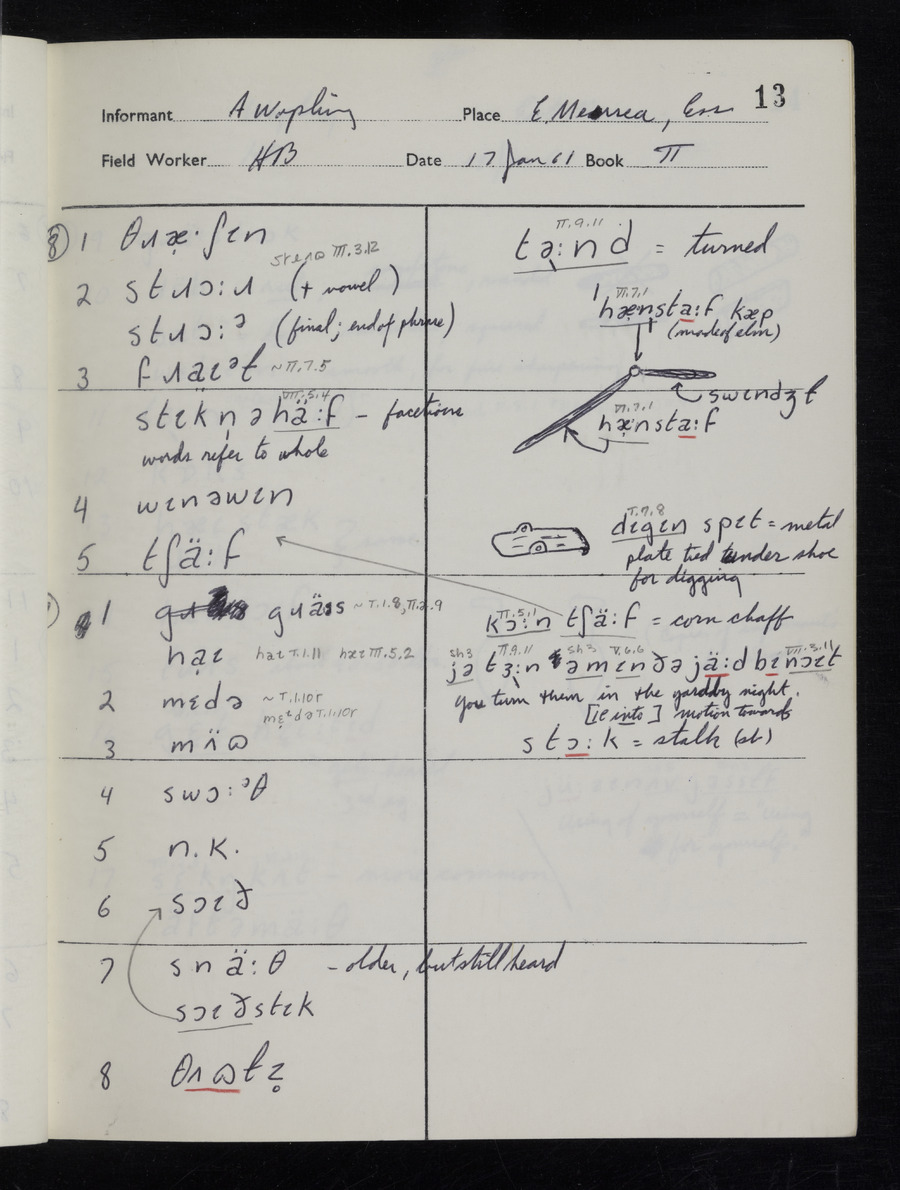 13
Informant A Wopling Place E Mersea, Ess
Field Worker HB Date 17 Jan 61 Book II
⑧ 1 θɹæ̣·ʃɪn
stɹɛɷ III.3.12
2 stɹɔ:ɹ (+ vowel)
stɹɔ:ᵊ (final; end of phrase)
3 fɹäɪᵊt ~II.7.5
VII.5.4
stɪkn̩əhä:f – facetious
words refer to whole
4 wɪnəwɪn
5 tʃä:f
1 gɹäːs ~ I.1.8, II.2.9
hạɪ haɪ I.1.11 hæɪ III.5.2
2 mɛdə ~ I.1.10r
mɛᶦdə I.1.10r
3 mïɷ
4 swɔ:ᵊθ
5 n.k.
6 sɔɪð
7 snä:θ – older, but still heard
sɔɪðstɪk
8 θɹɷtʔ
II.9.11
tə:nd = turned
VI.7.1
ˈhænsta:f kæp
(made of elm)
swɪndʒɫ
VI.7.1
hænsta:f
I.7.8
dɪgɪn spɪt = metal
plate tied under shoe
for digging
II.5.1
kɔ:n tʃä:f = corn chaff
sh3 II.9.11 sh3 V.6.6 VII.3.11
jə tɜ:n əm ɪn ðə jä:d bɪ nɔɪt
you turn them in the yard by night.
[ie into] motion towards
stɔ:k = stalk (sb)